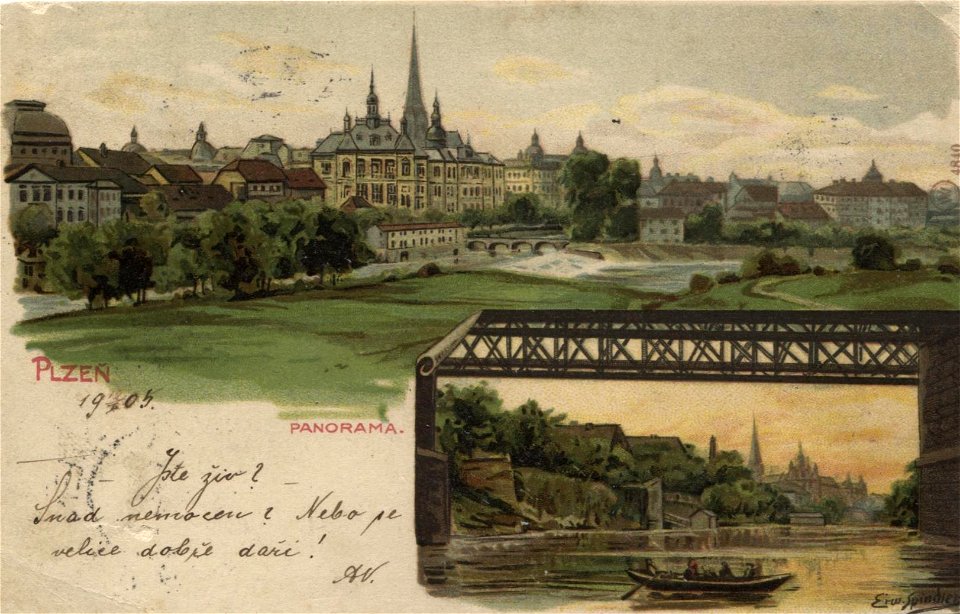 4840
PLZEŇ
19 05.
PANORAMA.
– Jste živ? –
Snad nemocen? Nebo se
velice dobře daří!
AV.
Erw. Spindler